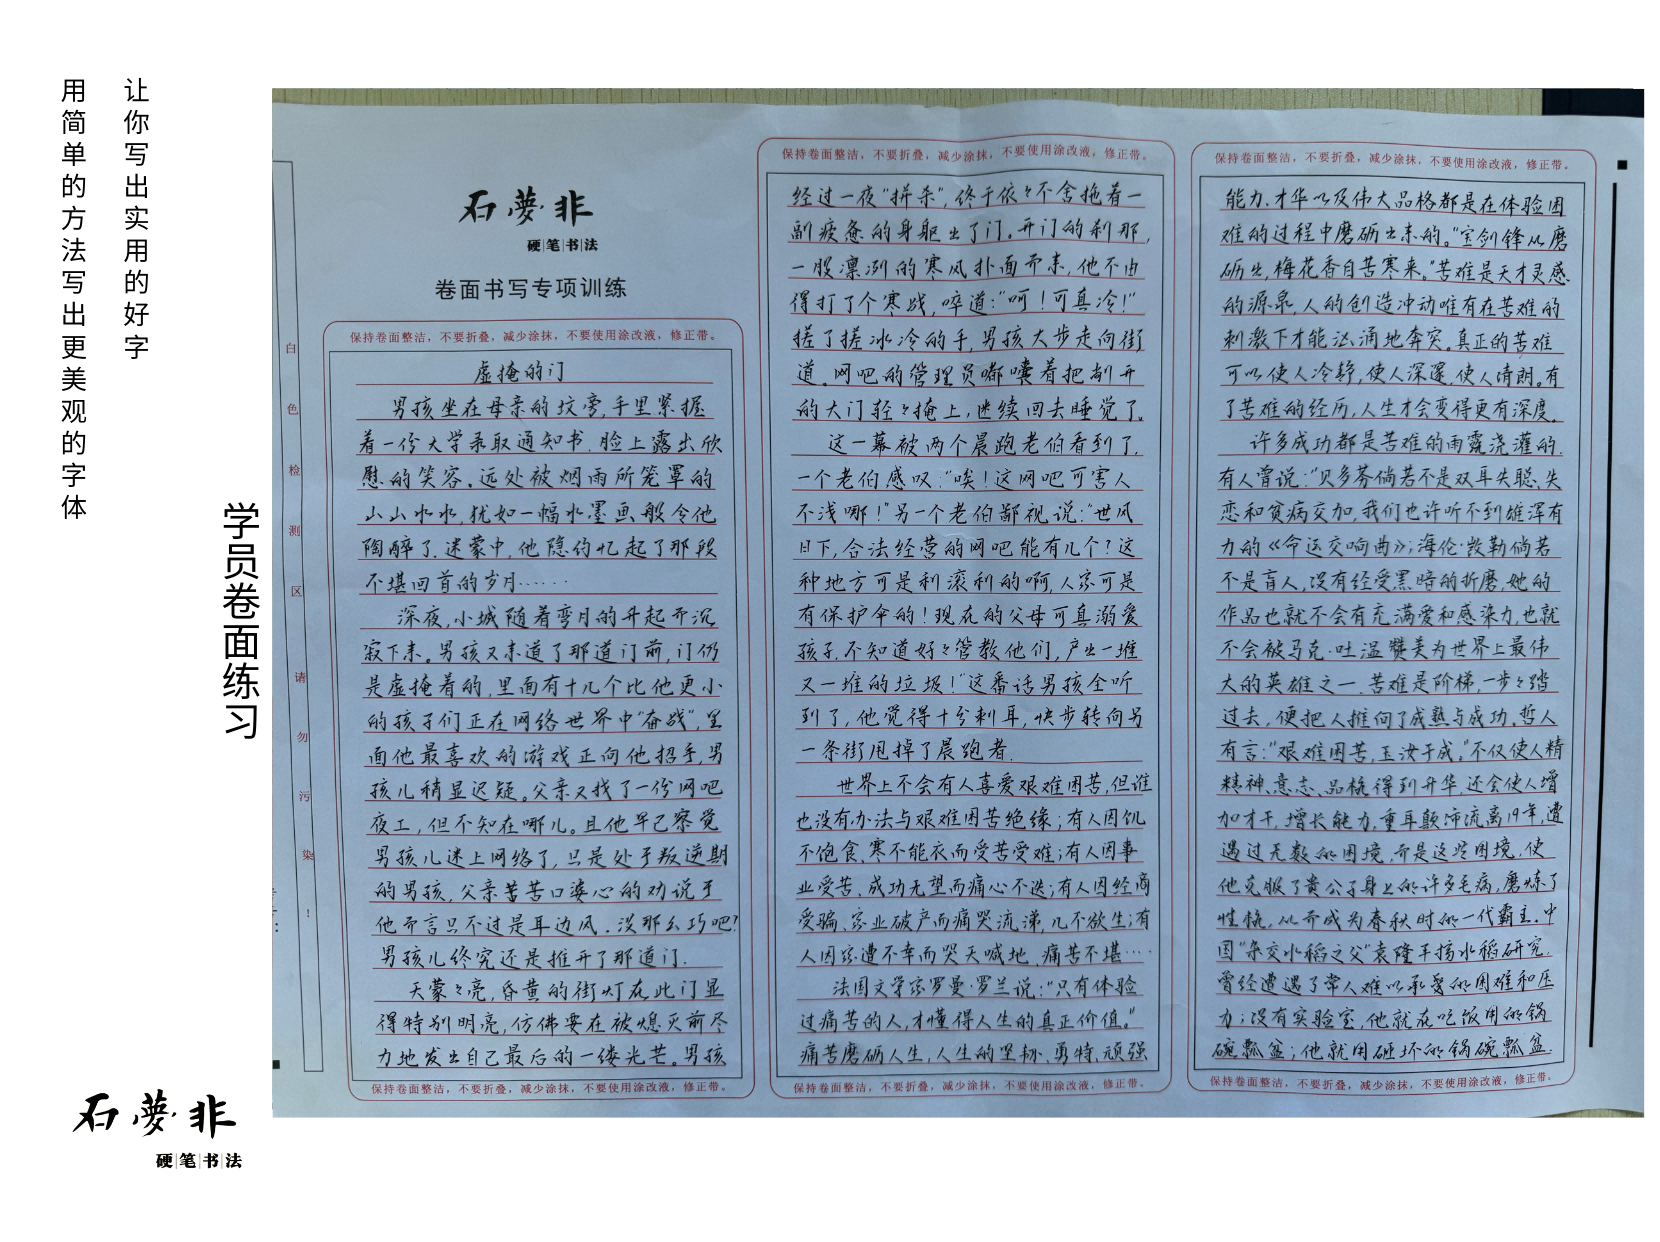 让你写出实用的好字
用简单的方法写出更美观的字体
学员卷面练习
石夢非
硬笔书法
白色检测区请勿污染!
石夢非
硬笔书法
卷面书写专项训练
保持卷面整洁，不要折叠，减少涂抹，不要使用涂改液，修正带。
虚掩的门
男孩坐在母亲的坟旁,手里紧握
着一份大学录取通知书.脸上露出欣
慰的笑容.远处被烟雨所笼罩的
山山水水,犹如一幅水墨画般令他
陶醉了.迷蒙中,他隐约忆起了那段
不堪回首的岁月······
深夜,小城随着弯月的升起而沉
寂下来。男孩又来道了那道门前,订仍
是虚掩着的,里面有十几个比他更小
的孩子们正在网络世界中"奋战",里
面他最喜欢的游戏正向他招手,男
孩儿稍显迟疑。父亲又找了一份网吧
夜工,但不知在哪儿。且他早已察觉
男孩儿迷上网络了,只是处于叛逆期
的男孩,父亲苦苦口婆心的劝说于
他而言只不过是耳边风.没那么巧吧?
男孩儿终究还是推开了那道门.
天蒙々亮,昏黄的街灯在此门显
得特别明亮,仿佛要在被熄灭前尽
力地发出自己最后的一缕光芒。男孩
保持卷面整洁，不要折叠，减少涂抹，不要使用涂改液，修正带。
保持卷面整洁，不要折叠，减少涂抹，不要使用涂改液，修正带。
经过一夜"拼杀",终于依々不舍拖着一
副疲惫的身躯出了门。开门的刹那,
一股凛冽的寒风扑面而来,他不由
得打了个寒战,啐道:"呵!可真冷!"
搓了搓冰冷的手,男孩大步走向街
道。网吧的管理员嘟囔着把敞开
的大门轻々掩上,继续回去睡觉了。
这一幕被两个晨跑老伯看到了,
一个老伯感叹:"唉!这网吧可害人
不浅哪!"另一个老伯鄙视说:"世风
日下,合法经营的网吧能有几个?这
种地方可是利滚利的啊,人家可是
有保护伞的!现在的父母可真溺爱
孩子,不知道好々管教他们,产出一堆
又一堆的垃圾!"这番话男孩全听
到了,他觉得十分刺耳,快步转向另
一条街甩掉了晨跑者.
世界上不会有人喜爱艰难困苦,但谁
也没有办法与艰难困苦绝缘;有人因饥
不饱食、寒不能衣而受苦受难;有人因事
业受苦、成功无望而痛心不迭;有人因经商
受骗、家业破产而痛哭流涕,几不欲生;有
人因家遭不幸而哭天喊地、痛苦不堪····
法国文学家罗曼·罗兰说:"只有体验
过痛苦的人,才懂得人生的真正价值。"
痛苦磨砺人生,人生的坚韧、勇特、顽强
保持卷面整洁，不要折叠，减少涂抹，不要使用涂改液，修正带。
保持卷面整洁，不要折叠，减少涂抹，不要使用涂改液，修正带。
能力.才华以及伟大品格都是在体验困
难的过程中磨砺出来的。"宝剑锋从磨
砺出,梅花香自苦寒来。"苦难是天才灵感
的源泉,人的创造冲动唯有在苦难的
刺激下才能汹涌地奔突。真正的苦难
可以使人冷静,使人深邃,使人清朗。有
了苦难的经历,人生才会变得更有深度。
许多成功都是苦难的雨露浇灌的.
有人曾说:"贝多芬倘若不是双耳失聪、失
恋和贫病交加,我们也许听不到雄浑有
力的《命运交响曲》;海伦·凯勒倘若
不是盲人,没有经受黑暗的折磨,她的
作品也就不会有充满爱和感染力,也就
不会被马克·吐温赞美为世界上最伟
大的英雄之一.苦难是阶梯,一步々踏
过去,便把人推向了成熟与成功。哲人
有言:"艰难困苦,玉汝于成。"不仅使人精
精神、意志、品格得到升华,还会使人增
加才干,增长能力,重耳颠沛流离19年,遭
遇过无数的困境.而是这些困境,使
他克服了贵公子身上的许多毛病,磨炼了
性格,从而成为春秋时的一代霸主.中
国"杂交水稻之父"袁隆平搞水稻研究,
曾经遭遇了常人难以承受的困难和压
力;没有实验室,他就在吃饭用的锅
碗瓢盆;他就用砸坏的锅碗瓢盆.
保持卷面整洁，不要折叠，减少涂抹，不要使用涂改液，修正带。